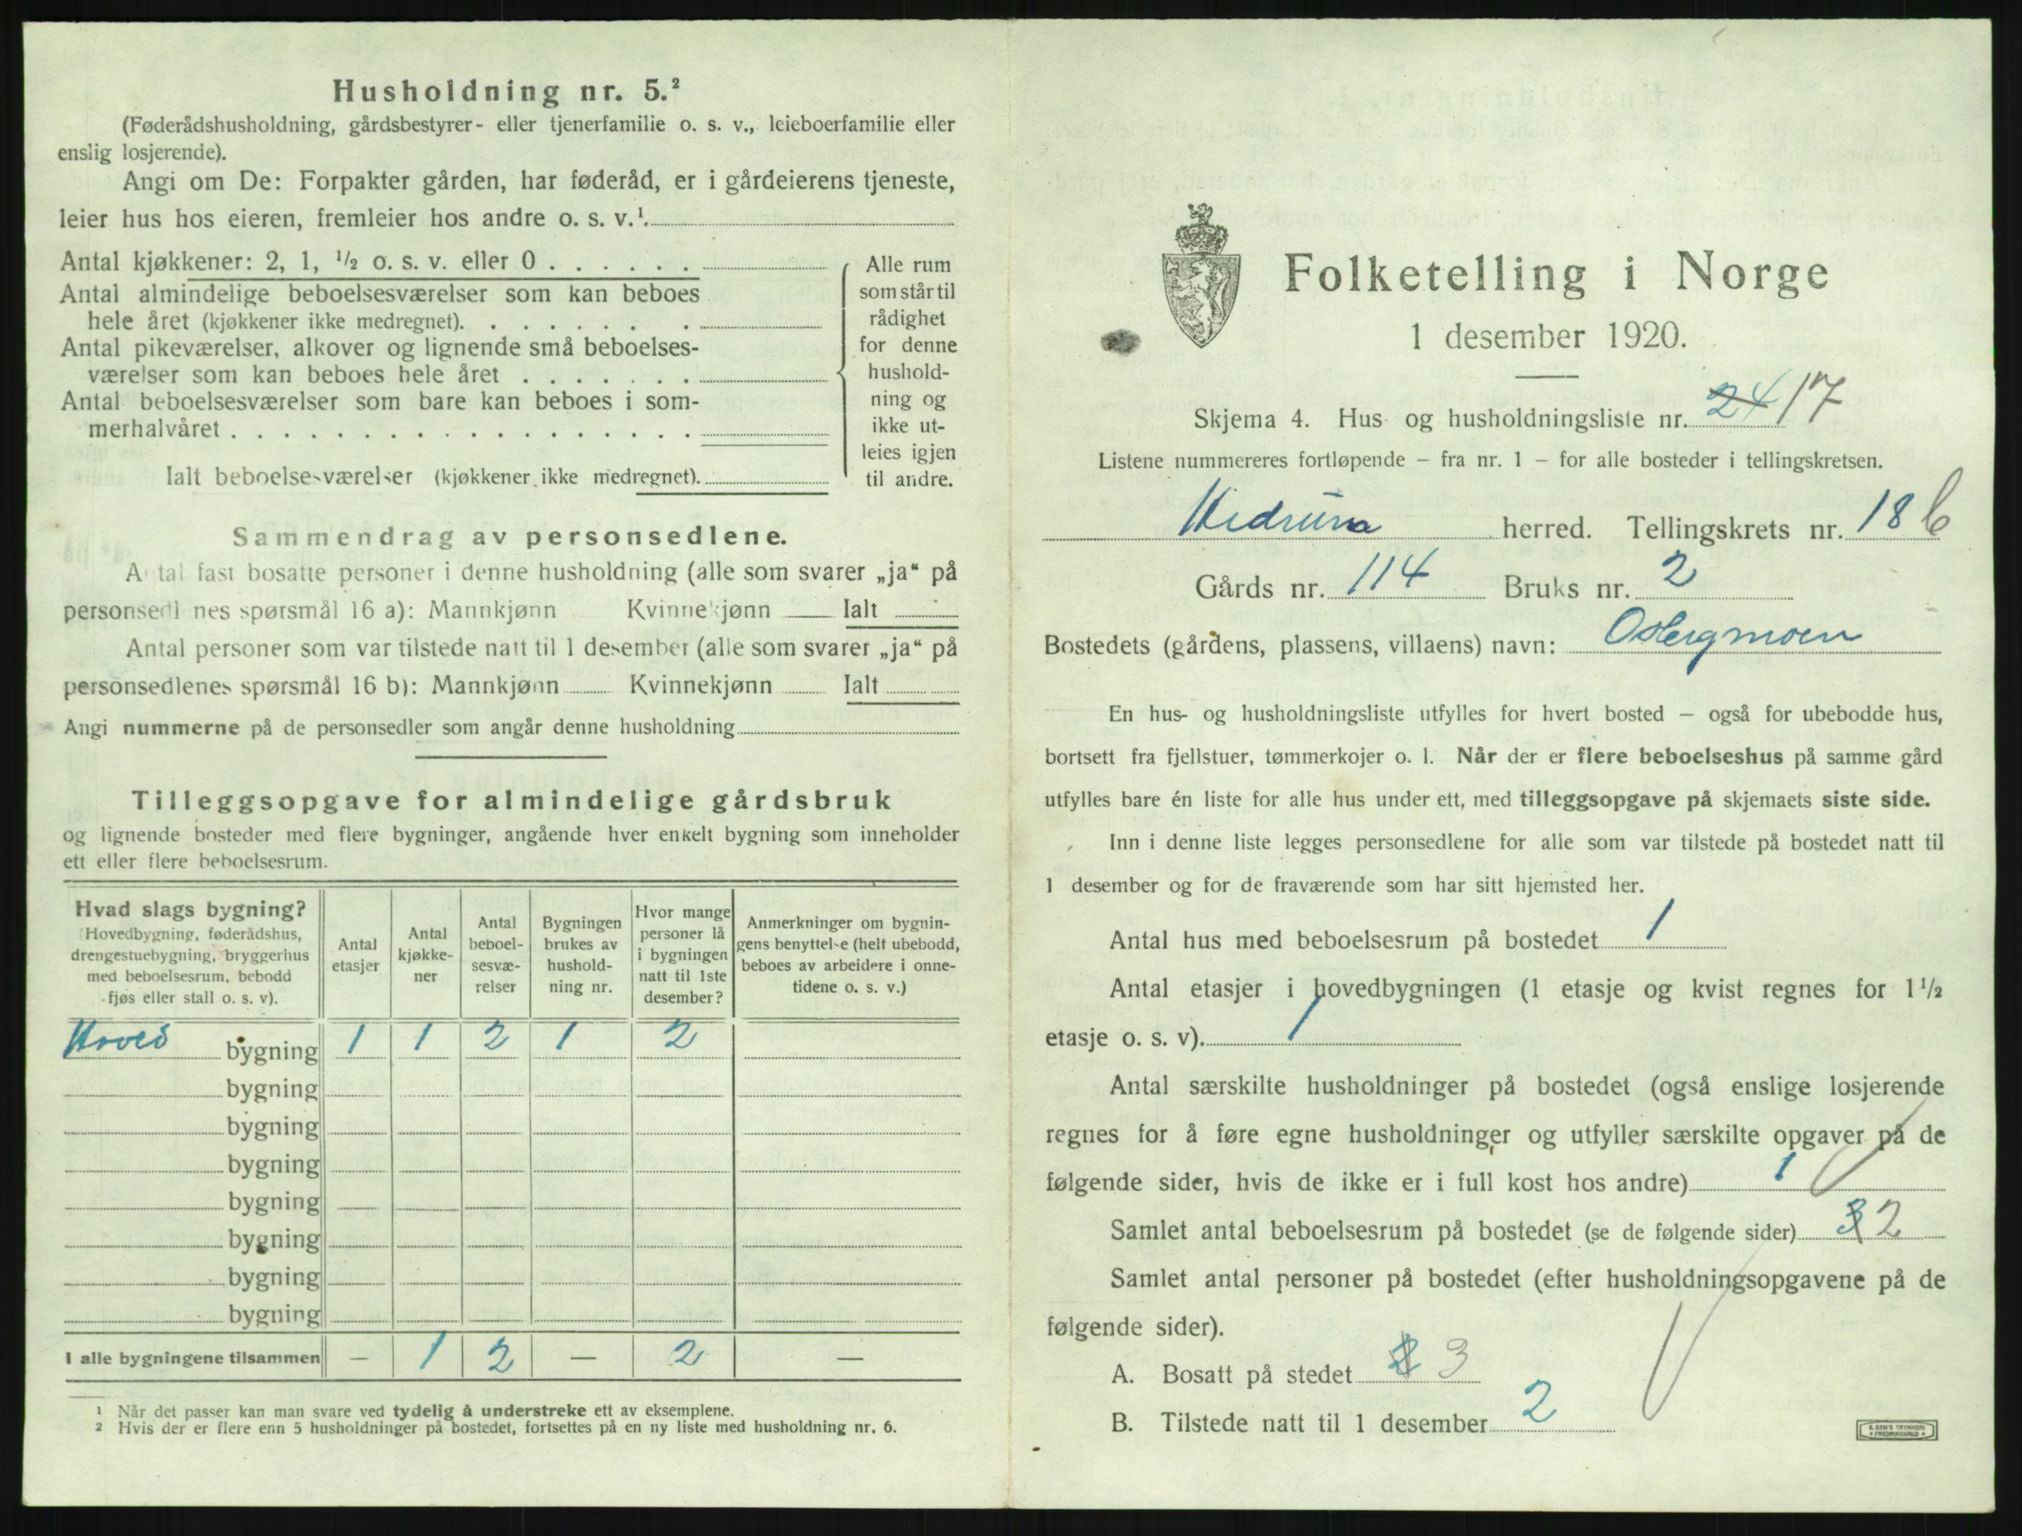 Husholdning nr. 5.²
(Føderådshusholdning, gårdsbestyrer- eller tjenerfamilie o. s. v., leieboerfamilie eller
enslig losjerende).
Angi om De: Forpakter gården, har føderåd, er i gårdeierens tjeneste,
leier hus hos eieren, fremleier hos andre o. s. v.¹
Antal kjøkkener: 2, 1, ½ o. s. v. eller 0
Antal almindelige beboelsesværelser som kan beboes
hele året (kjøkkener ikke medregnet).
Antal pikeværelser, alkover og lignende små beboelses-
værelser som kan beboes hele året
Antal beboelsesværelser som bare kan beboes i som-
merhalvåret
Ialt beboelsesværelser (kjøkkener ikke medregnet).
Alle rum
som står til
rådighet
for denne
hushold-
ning og
ikke ut-
leies igjen
til andre.
Sammendrag av personsedlene.
Antal fast bosatte personer i denne husholdning (alle som svarer „ja“ på
personsedlenes spørsmål 16 a): Mannkjønn Kvinnekjønn Ialt
Antal personer som var tilstede natt til 1 desember (alle som svarer „ja“ på
personsedlenes spørsmål 16 b): Mannkjønn Kvinnekjønn Ialt
Angi nummerne på de personsedler som angår denne husholdning
Tilleggsopgave for almindelige gårdsbruk
og lignende bosteder med flere bygninger, angående hver enkelt bygning som inneholder
ett eller flere beboelsesrum.
Hvad slags bygning?
Hovedbygning, føderådshus,
drengestuebygning, bryggerhus
med beboelsesrum, bebodd
fjøs eller stall o. s. v).
Antal
etasjer
Antal
kjøkke-
ner
Antal
beboel-
sesvæ-
relser
Bygningen
brukes av
hushold-
ning nr.
Hvor mange
personer lå
i bygningen
natt til 1ste
desember?
Anmerkninger om bygnin-
gens benyttelse (helt ubebodd,
beboes av arbeidere i onne-
tidene o. s. v.)
Hoved bygning 1 1 2 1 2
bygning
bygning
bygning
bygning
bygning
bygning
bygning
I alle bygningene tilsammen — 1 2 — 2 —
¹ Når det passer kan man svare ved tydelig å understreke ett av eksemplene.
² Hvis der er flere enn 5 husholdninger på bostedet, fortsettes på en ny liste med husholdning nr. 6.
Folketelling i Norge
1 desember 1920.
Skjema 4. Hus- og husholdningsliste nr. 24 17
Listene nummereres fortløpende – fra nr. 1 – for alle bosteder i tellingskretsen.
Hedrum herred. Tellingskrets nr. 18 b
Gårds nr. 114 Bruks nr. 2
Bostedets (gårdens, plassens, villaens) navn: Osbergmoen
En hus- og husholdningsliste utfylles for hvert bosted – også for ubebodde hus,
bortsett fra fjellstuer, tømmerkojer o. l. Når der er flere beboelseshus på samme gård
utfylles bare én liste for alle hus under ett, med tilleggsopgave på skjemaets siste side.
Inn i denne liste legges personsedlene for alle som var tilstede på bostedet natt til
1 desember og for de fraværende som har sitt hjemsted her.
Antal hus med beboelsesrum på bostedet 1
Antal etasjer i hovedbygningen (1 etasje og kvist regnes for 1½
etasje o. s. v). 1
Antal særskilte husholdninger på bostedet (også enslige losjerende
regnes for å føre egne husholdninger og utfyller særskilte opgaver på de
følgende sider, hvis de ikke er i full kost hos andre) 1
Samlet antal beboelsesrum på bostedet (se de følgende sider) 3 2
Samlet antal personer på bostedet (efter husholdningsopgavene på de
følgende sider).
A. Bosatt på stedet 2 3
B. Tilstede natt til 1 desember 2